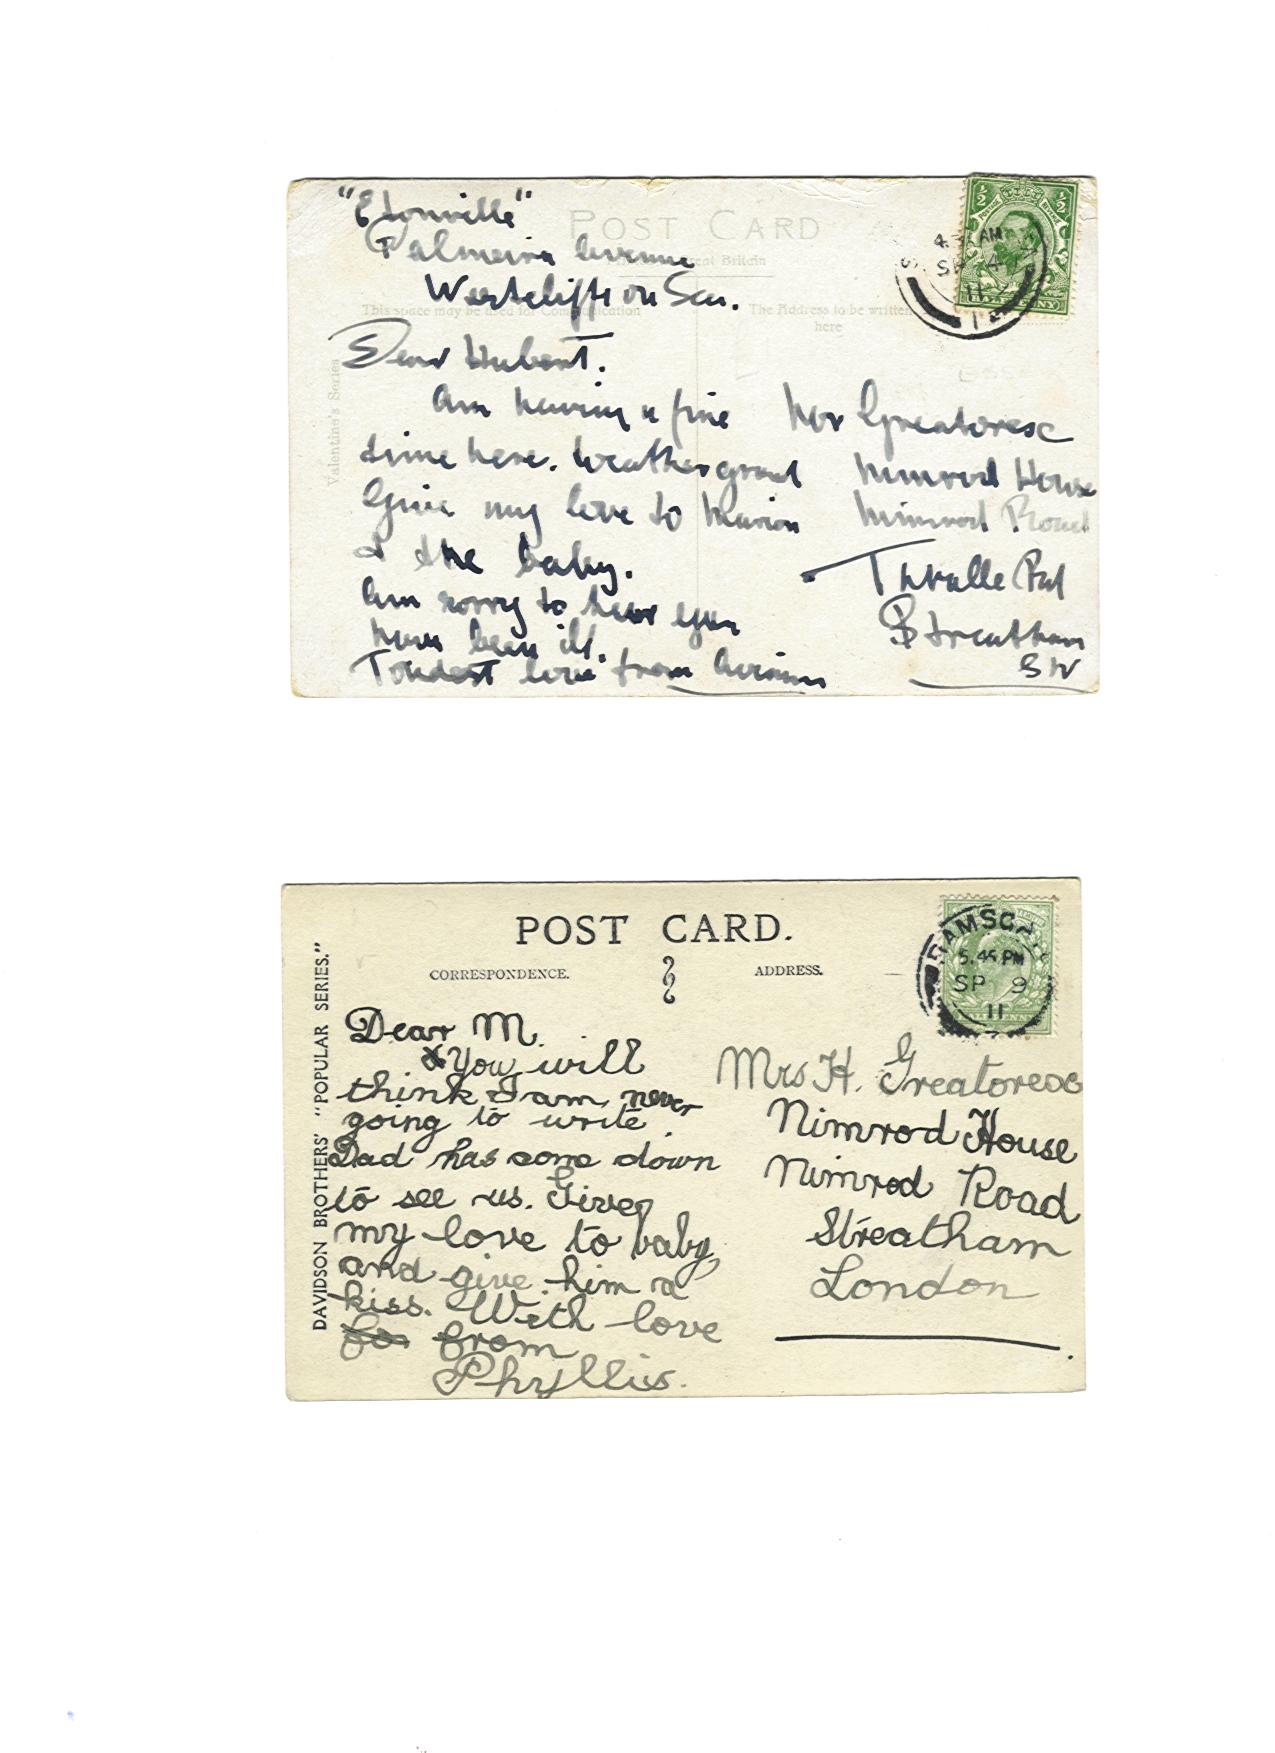 "Etonville"
Palmeira Avenue
Westcliffe on Sea.
POST CARD
Great Britain
This space may be used for Communication
The Address to be written
here
Valentine's Series
Dear Hubert.
Am having a fine
time here. Weather grand
Give my love to Marion
& the baby.
Am sorry to hear you
have been ill.
Fondest love from
Greatorex
Nimrod House
Nimrod Road
Thralle Park
Streatham
SW
AM
SP 4
11
POST CARD.
CORRESPONDENCE.
ADDRESS.
DAVIDSON BROTHERS' "POPULAR SERIES."
5.45 PM
SP 9
11
Dear M.
You will
think I am never
going to write.
Dad has come down
to see us. Give
my love to baby,
and give him a
kiss. With love
from
Phyllis.
Mrs H. Greatorex
Nimrod House
Nimrod Road
Streatham
London